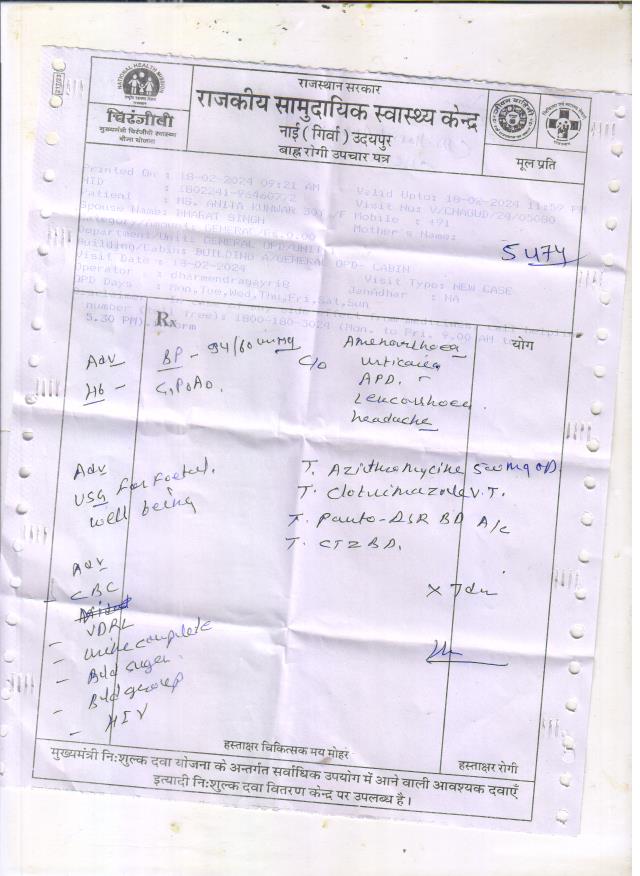 राजस्थान सरकार
राजकीय सामुदायिक स्वास्थ्य केन्द्र
नाई ( गिर्वा ) उदयपुर
बाह्य रोगी उपचार पत्र
NATIONAL HEALTH MISSION
चिरंजीवी
मुख्यमंत्री चिरंजीवी स्वास्थ्य
बीमा योजना
मूल प्रति
Printed On : 18-02-2024 09:21 AM
Valid Upto: 18-02-2024 11:59 PM
HID
Visit No: V/CHAGUD/24/05080
Patient : MS. ANITA KUNWAR 30 /F Mobile : +91
Spouse Name: BHARAT SINGH
Mother's Name:
GENERAL/Rs.0.00
Department/Unit: GENERAL OPD/UNIT
Building/Cabin: BUILDING A/GENERAL OPD- CABIN
5474
Visit Date : 18-02-2024
Visit Type: NEW CASE
Operator : dharmendragayri8
JanAdhar : NA
OPD Days : Mon,Tue,Wed,Thu,Fri,Sat,Sun
number (Toll free): 1800-180-3024 (Mon. to Fri. 9.00 AM to
5.30 PM).
Rx
योग
Adv
BP - 94/60 mmHg
C/o
Amenorrhoea
Hb -
G1P0A0.
urticaria
APD.
Leucorrhoea.
headache
Adv
USG for foetal
well being
T. Azithromycine 500mg OD
T. Clotrimazole V.T.
T. Panto-DSR BD A/c
T. CTZ BD.
Adv
- CBC
VDRL
- urine complete
- Bld sugar
- Bld group
- HIV
हस्ताक्षर चिकित्सक मय मोहर
हस्ताक्षर रोगी
मुख्यमंत्री नि:शुल्क दवा योजना के अन्तर्गत सर्वाधिक उपयोग में आने वाली आवश्यक दवाएँ
इत्यादी नि:शुल्क दवा वितरण केन्द्र पर उपलब्ध है।